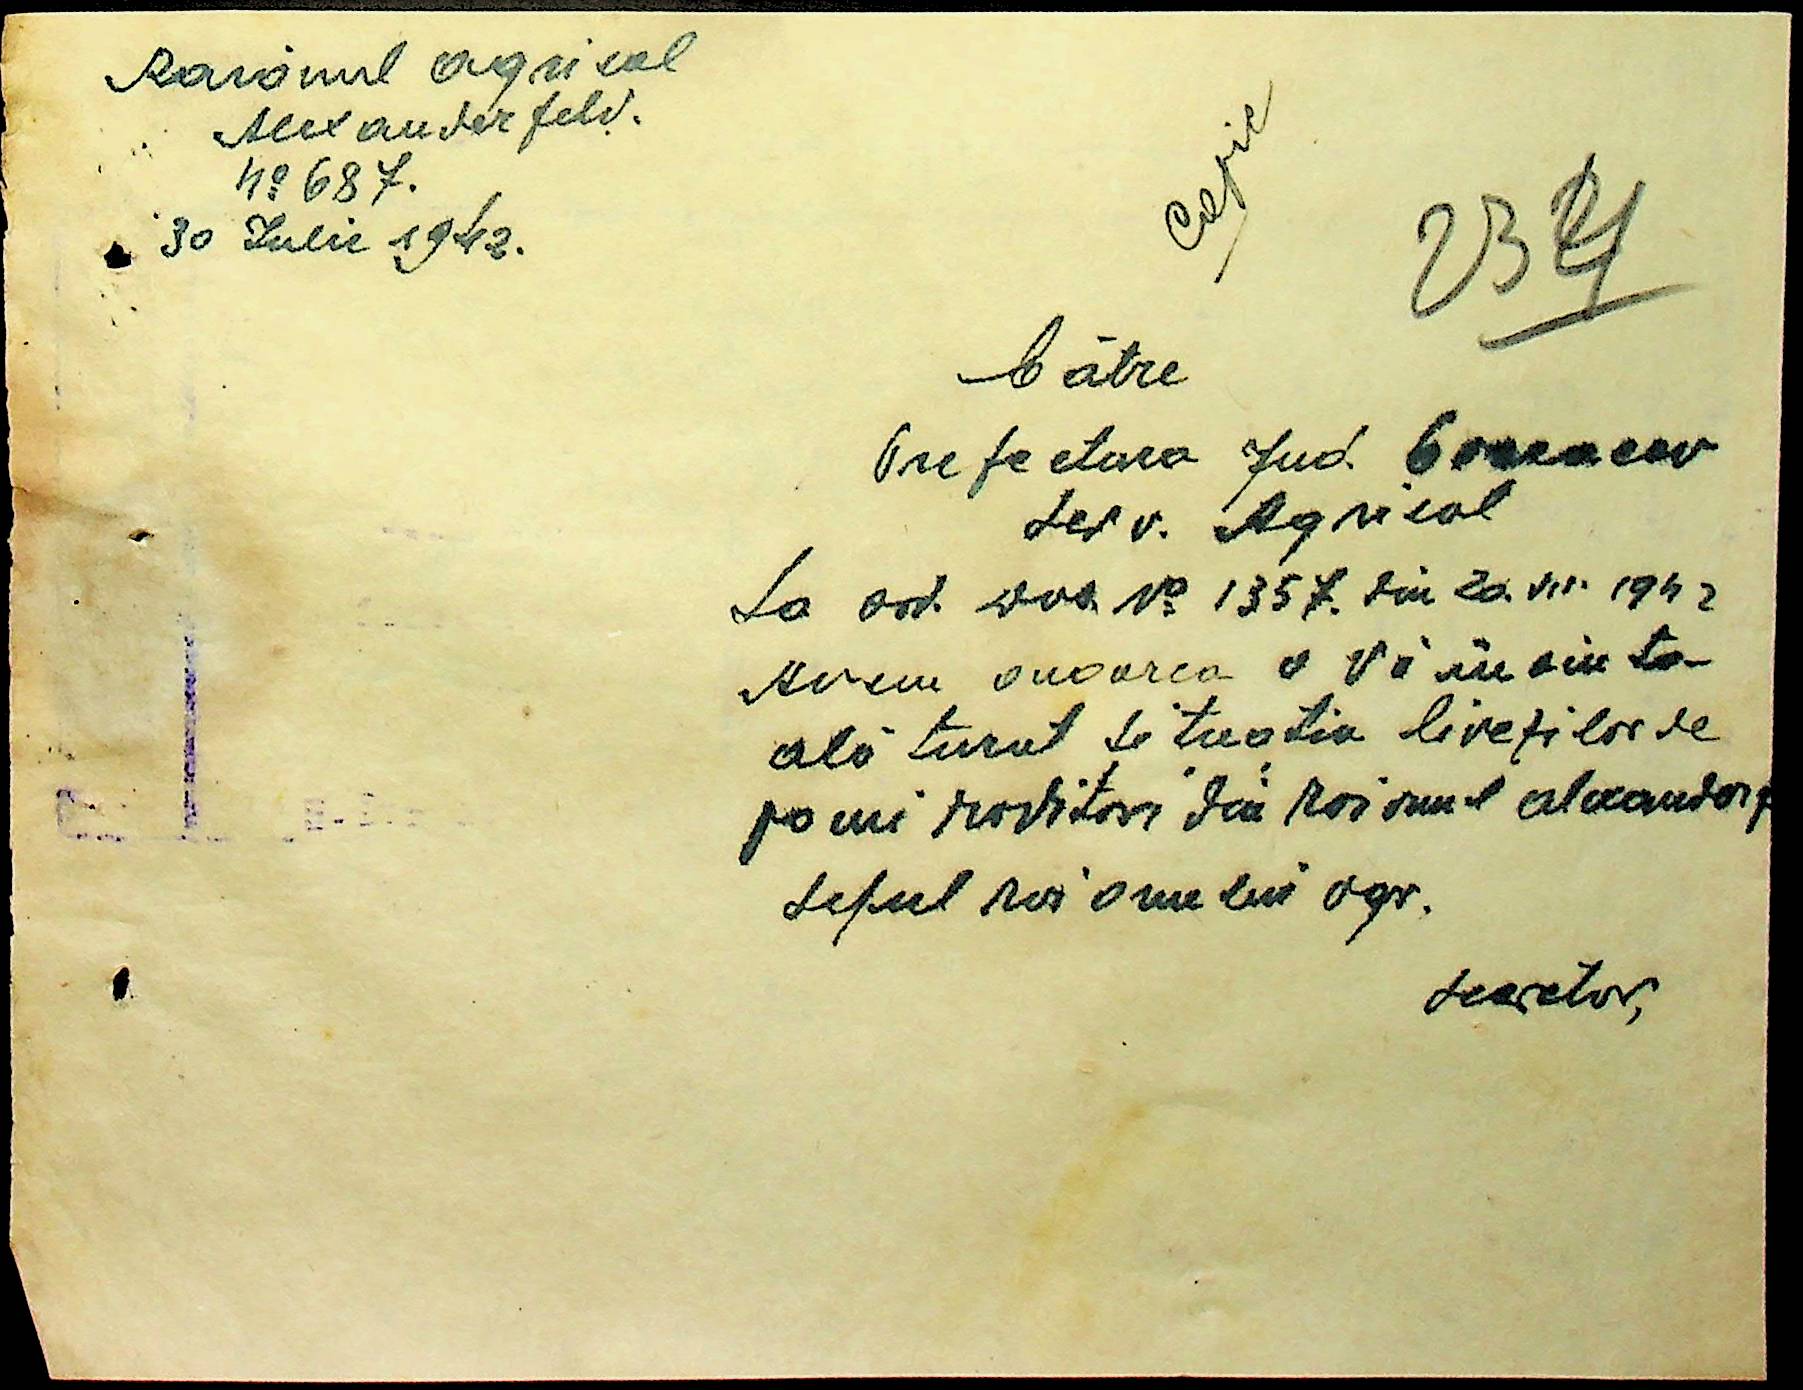 Raionul agricol
Alexanderfeld.
No 687.
30 Iulie 1942.
Copie
23
Către
Prefectura Jud.
Serv. Agricol
La ord. dvs. No 1357. din 20. VII. 1942
Avem onoarea a Vă înainta
alăturat situatia livezilor de
pomi roditori din raionul alexanderf
Seful raionului agr.
Secretar,